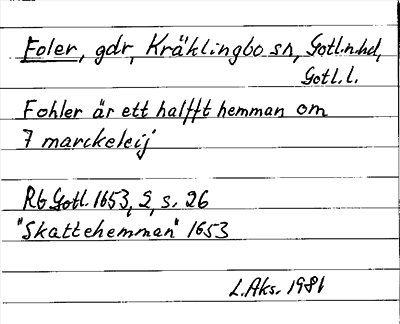 Foler, gdr, Kräklingbo sn, Gotl.n.hd,
Gotl.l.
Fohler är ett halfft hemman om
7 marckeleij
Rb Gotl. 1653, 2, s. 26
"Skattehemman" 1653
L.Aks. 1981